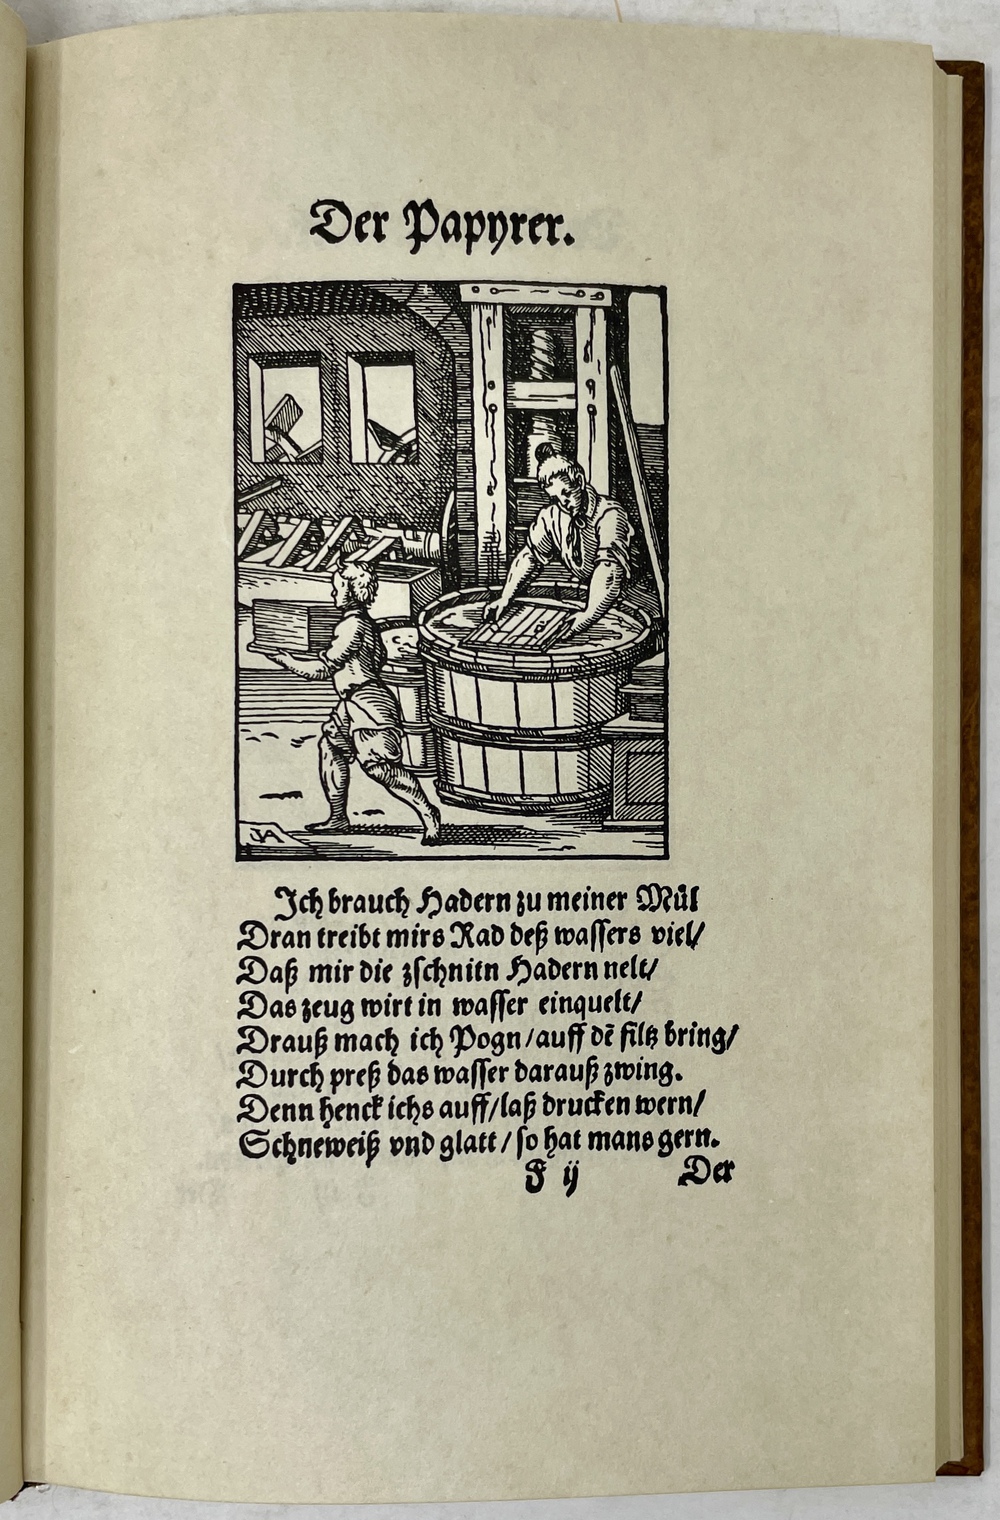 Der Papyrer.
JA
Ich brauch Hadern zu meiner Mül
Dran treibt mirs Rad deß wassers viel/
Daß mir die zschnitn Hadern nelt/
Das zeug wirt in wasser einquelt/
Drauß mach ich Pogn/auff dē filtz bring/
Durch preß das wasser darauß zwing.
Denn henck ichs auff/laß drucken wern/
Schneweiß vnd glatt/so hat mans gern.
F ij Der